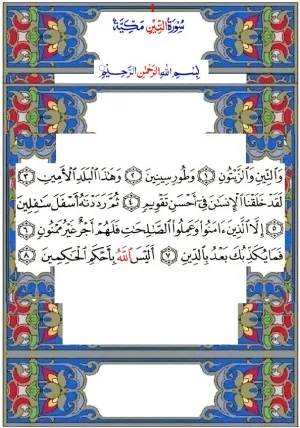 سُورَةُ التِّينِ مَكِّيَّةٌ
بِسْمِ اللهِ الرَّحْمٰنِ الرَّحِيْمِ
وَٱلتِّينِ وَٱلزَّيْتُونِ ۝١ وَطُورِ سِينِينَ ۝٢ وَهَٰذَا ٱلْبَلَدِ ٱلْأَمِينِ ۝٣
لَقَدْ خَلَقْنَا ٱلْإِنسَٰنَ فِىٓ أَحْسَنِ تَقْوِيمٍ ۝٤ ثُمَّ رَدَدْنَٰهُ أَسْفَلَ سَٰفِلِينَ
۝٥ إِلَّا ٱلَّذِينَ ءَامَنُوا۟ وَعَمِلُوا۟ ٱلصَّٰلِحَٰتِ فَلَهُمْ أَجْرٌ غَيْرُ مَمْنُونٍ ۝٦
فَمَا يُكَذِّبُكَ بَعْدُ بِٱلدِّينِ ۝٧ أَلَيْسَ ٱللَّهُ بِأَحْكَمِ ٱلْحَٰكِمِينَ ۝٨